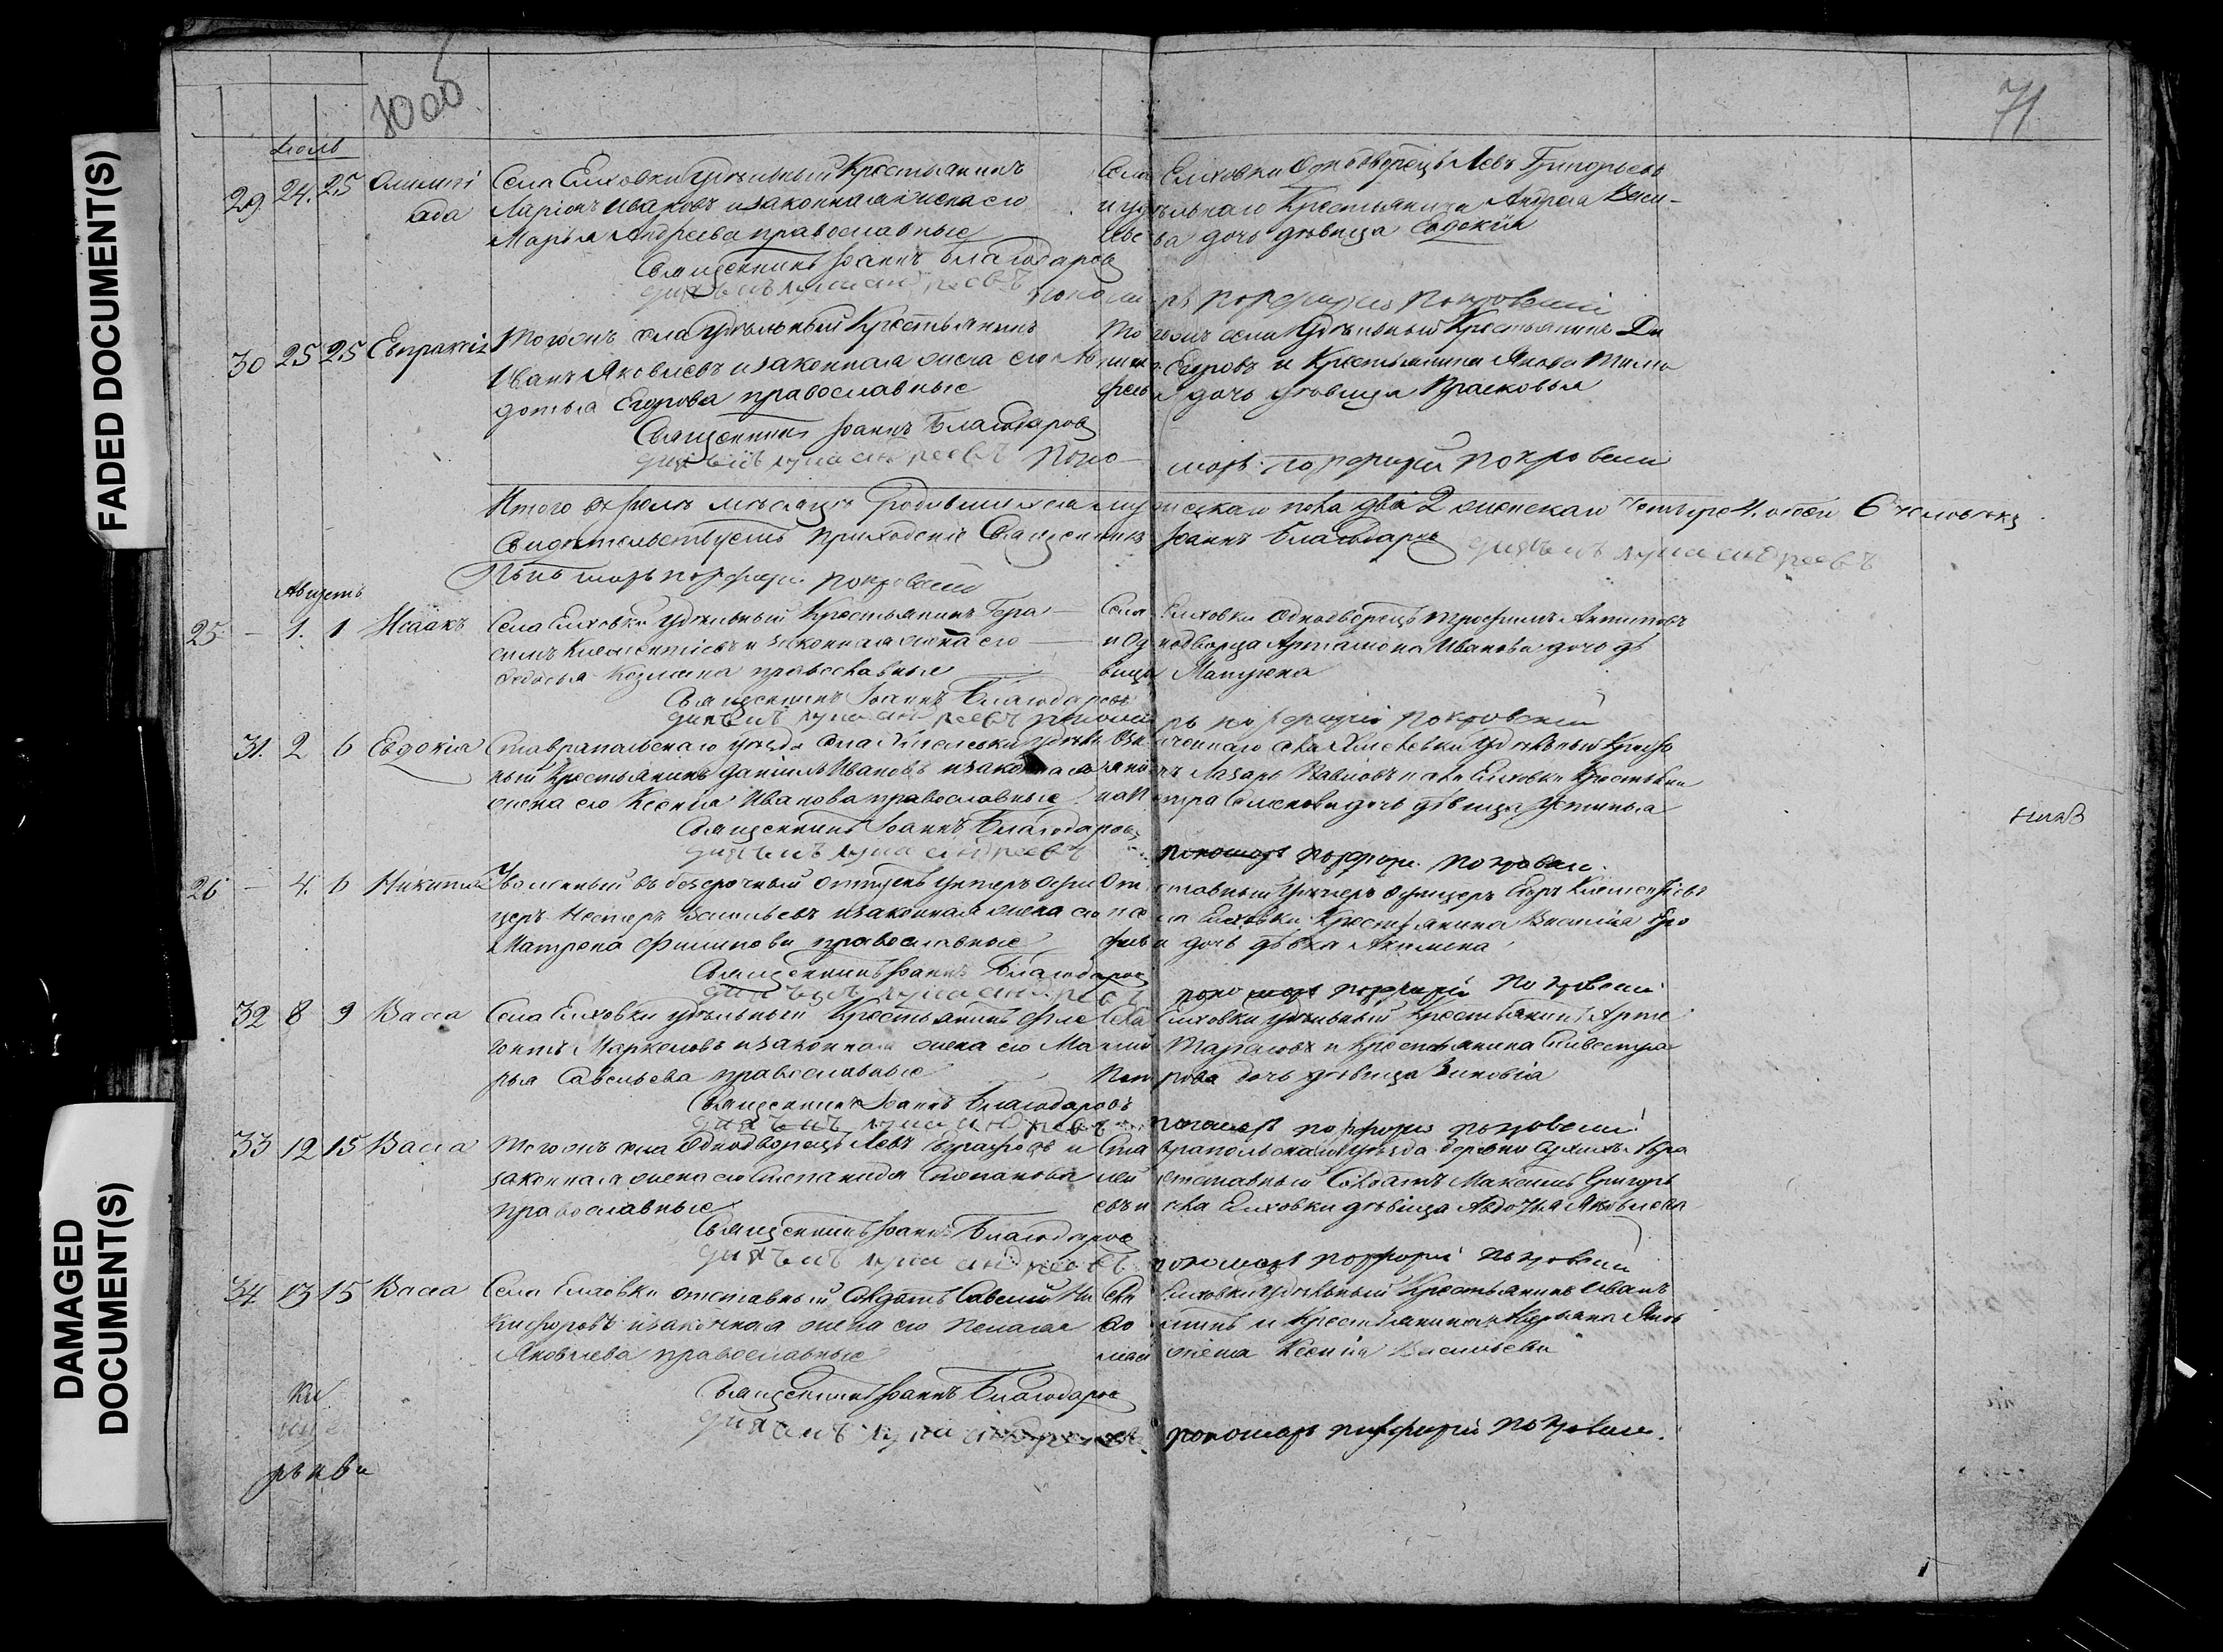 FADED DOCUMENT(S)
DAMAGED DOCUMENT(S)
70об
71
Июль
29 24. 25 Олимпіада
Села Елховки Удѣльный Крестьянинъ
Ларіонъ Ивановъ и законная жена его
Марья Андреева православные
Села Елховки Однодворецъ Левъ Григорьевъ
и удѣльнаго Крестьянина Андрея Васильева дочь дѣвица Евдокія
Священникъ Іоаннъ Благодаровъ
діяконъ лука андреевъ
пономарь порфирій покровскій
30 25 25 Евпраксія
Тогожъ села Удѣльный Крестьянинъ
Иванъ Яковлевъ и законная жена его Авдотья Егорова православные
Тогожъ села Удѣльный Крестьянинъ
Егоровъ и Крестьянина Якова Тимофеева дочь дѣвица Прасковья
Священникъ Іоаннъ Благодаровъ
діяконъ лука андреевъ пономарь порфирій покровскій
Итого въ Іюлѣ мѣсяцѣ Родившихся мужескаго пола два 2 женскаго Четыре 4. обоего 6 человѣкъ
Свидѣтельствуетъ Приходскій Священникъ Іоаннъ Благодаровъ діяконъ лука андреевъ
пономарь порфирій покровскій
Августъ
25 - 1. 1 Исаакъ
Села Елховки удѣльный Крестьянинъ Герасимъ Климентіевъ и законная жена его
Федосья Козмина православные
Села Елховки Однодворецъ Трофимъ Антиповъ
и Однодворца Артамона Иванова дочь дѣвица Матрена
Священникъ Іоаннъ Благодаровъ
діяконъ лука андреевъ пономарь порфирій покровскій
31. 2 6 Евдокія
Ставрапольскаго уѣзда села удѣльный Крестьянинъ Даніилъ Ивановъ и законная
жена его Ксенія Иванова православные
Означеннаго села удѣльный Крестьянинъ Лазарь Павловъ и села Елховки Крестьянина Петра Семенова дочь дѣвица Устинья
Священникъ Іоаннъ Благодаровъ
діяконъ лука андреевъ
пономарь порфирій покровскій
26 - 4. 6 Никита
Уволенный въ безсрочный отпускъ Унтеръ Офицеръ Нестеръ Васильевъ и законная жена его
Матрена Филипова православные
Отставный Унтеръ Офицеръ Егоръ Климентіевъ
и села Елховки Крестьянина дочь дѣвка Акилина
Священникъ Іоаннъ Благодаровъ
діяконъ лука андреевъ
пономарь порфирій покровскій
32 8 9 Васса
Села Елховки удѣльный Крестьянинъ Флегонтъ Маркеловъ и законная жена его Марья Савельева православные
Села Елховки удѣльный Крестьянинъ Артемій Тарасовъ и Крестьянина Сильвестра
Петрова дочь дѣвица Зиновія
Священникъ Іоаннъ Благодаровъ
діяконъ лука андреевъ
пономарь порфирій покровскій
33 12 15 Васса
Тогожъ села Однодворецъ Левъ и законная жена его Степанида Степанова
православные
Ставрапольскаго уѣзда деревни
отставный Солдатъ Максимъ Григорьевъ и села Елховки дѣвица Авдотья Яковлева
Священникъ Іоаннъ Благодаровъ
діяконъ лука андреевъ
пономарь порфирій покровскій
34 13 15 Васса
Села Елховки отставный Солдатъ Савелій Никифоровъ и законная жена его Пелагея
Яковлева православные
Села Елховки Удѣльный Крестьянинъ Иванъ
и Крестьянина жена Ксенія Васильева
Священникъ Іоаннъ Благодаровъ
діяконъ лука андреевъ
пономарь порфирій покровскій